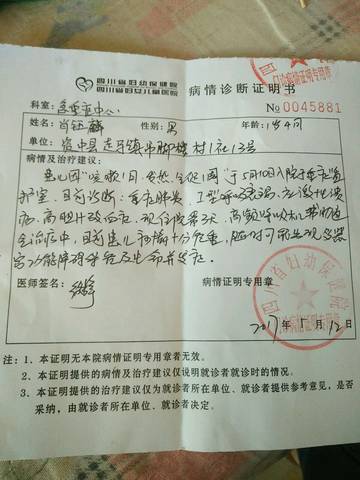 四川省妇幼保健院
四川省妇女儿童医院
病情诊断证明书
病情证明专用章
No 0045881
科室: 重症中心
姓名: 肖钰麟 性别: 男 年龄: 1岁4月
单位: 资中县 村1社13号
病情及治疗建议:
患儿因"咳嗽1日, 1周"于5月10入院于重症监
护室, 目前诊断: 重症肺炎, I型呼吸衰竭, 应激性溃
疡, 高胆汁酸血症, 现住院第3天, 高频呼吸机
治疗中, 目前患儿病情十分危重, 随时可能出现多器
官功能障碍 及生命并发症.
医师签名: 病情证明专用章
四川省妇幼保健院
病情证明专用章
2017年5月12日
注: 1、本证明无本院病情证明专用章者无效。
2、本证明提供的病情及治疗建议仅说明就诊者就诊时的情况。
3、本证明提供的治疗建议仅为就诊者所在单位、就诊者提供参考意见,是否
采纳,由就诊者所在单位、就诊者决定。